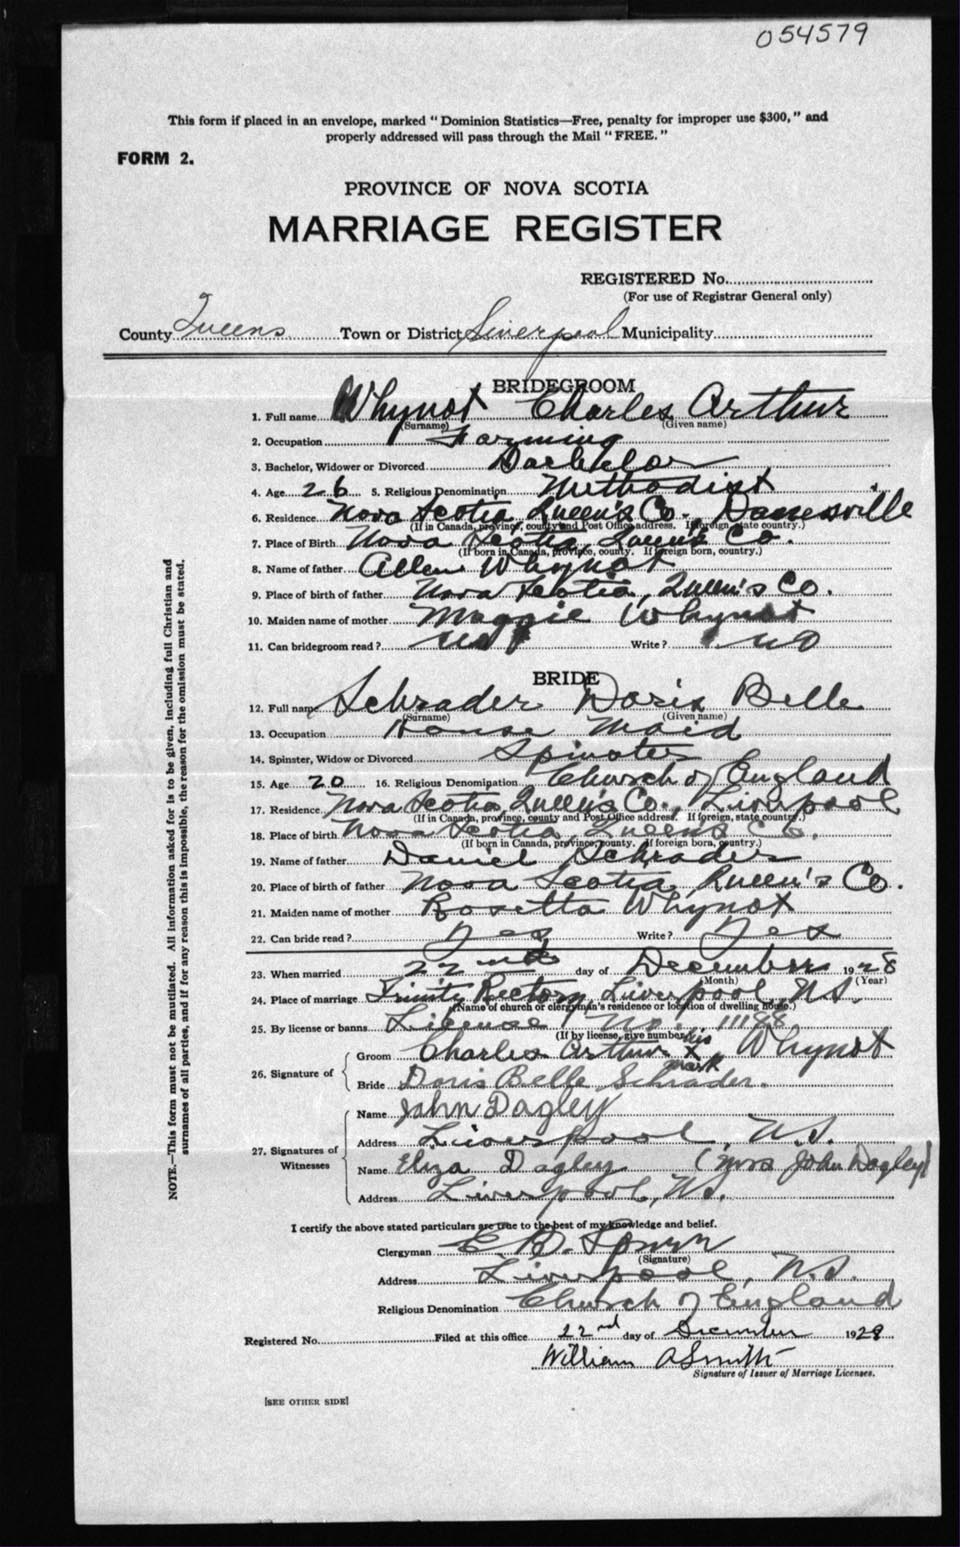 054579
This form if placed in an envelope, marked "Dominion Statistics—Free, penalty for improper use $300," and
properly addressed will pass through the Mail "FREE."
FORM 2.
PROVINCE OF NOVA SCOTIA
MARRIAGE REGISTER
REGISTERED No.
(For use of Registrar General only)
County Queens Town or District Liverpool Municipality
BRIDEGROOM
1. Full name Whynot Charles Arthur
(Surname) (Given name)
2. Occupation Farming
3. Bachelor, Widower or Divorced Bachelor
4. Age 26 5. Religious Denomination Methodist
6. Residence Nova Scotia Queen's Co.
(If in Canada, province, county and Post Office address. If foreign, state country.)
7. Place of Birth Nova Scotia Queen's Co.
(If born in Canada, province, county. If foreign born, country.)
8. Name of father Allen Whynot
9. Place of birth of father Nova Scotia, Queen's Co.
10. Maiden name of mother Maggie Whynot
11. Can bridegroom read? Write? no
BRIDE
12. Full name Schrader Doris Belle
(Surname) (Given name)
13. Occupation House Maid
14. Spinster, Widow or Divorced Spinster
15. Age 20 16. Religious Denomination Church of England
17. Residence Nova Scotia, Queen's Co., Liverpool
(If in Canada, province, county and Post Office address. If foreign, state country.)
18. Place of birth Nova Scotia, Queen's Co.
(If born in Canada, province, county. If foreign born, country.)
19. Name of father Daniel Schrader
20. Place of birth of father Nova Scotia, Queen's Co.
21. Maiden name of mother Rosetta Whynot
22. Can bride read? Yes Write? Yes
23. When married 22nd day of December 1928
(Month) (Year)
24. Place of marriage Trinity Rectory, Liverpool, N.S.
(Name of church or clergyman's residence or location of dwelling house.)
25. By license or banns License No. 11188
(If by license, give number)
26. Signature of
Groom Charles Arthur his X mark Whynot
Bride Doris Belle Schrader.
27. Signatures of Witnesses
Name John Dagley
Address Liverpool, N.S.
Name Eliza Dagley (Mrs John Dagley)
Address Liverpool, N.S.
I certify the above stated particulars are true to the best of my knowledge and belief.
Clergyman
(Signature)
Address Liverpool, N.S.
Religious Denomination Church of England
Registered No. Filed at this office 22nd day of December 1928
William A Smith
Signature of Issuer of Marriage Licenses.
[SEE OTHER SIDE]
NOTE.—This form must not be mutilated. All information asked for is to be given, including full Christian and
surnames of all parties, and if for any reason this is impossible, the reason for the omission must be stated.